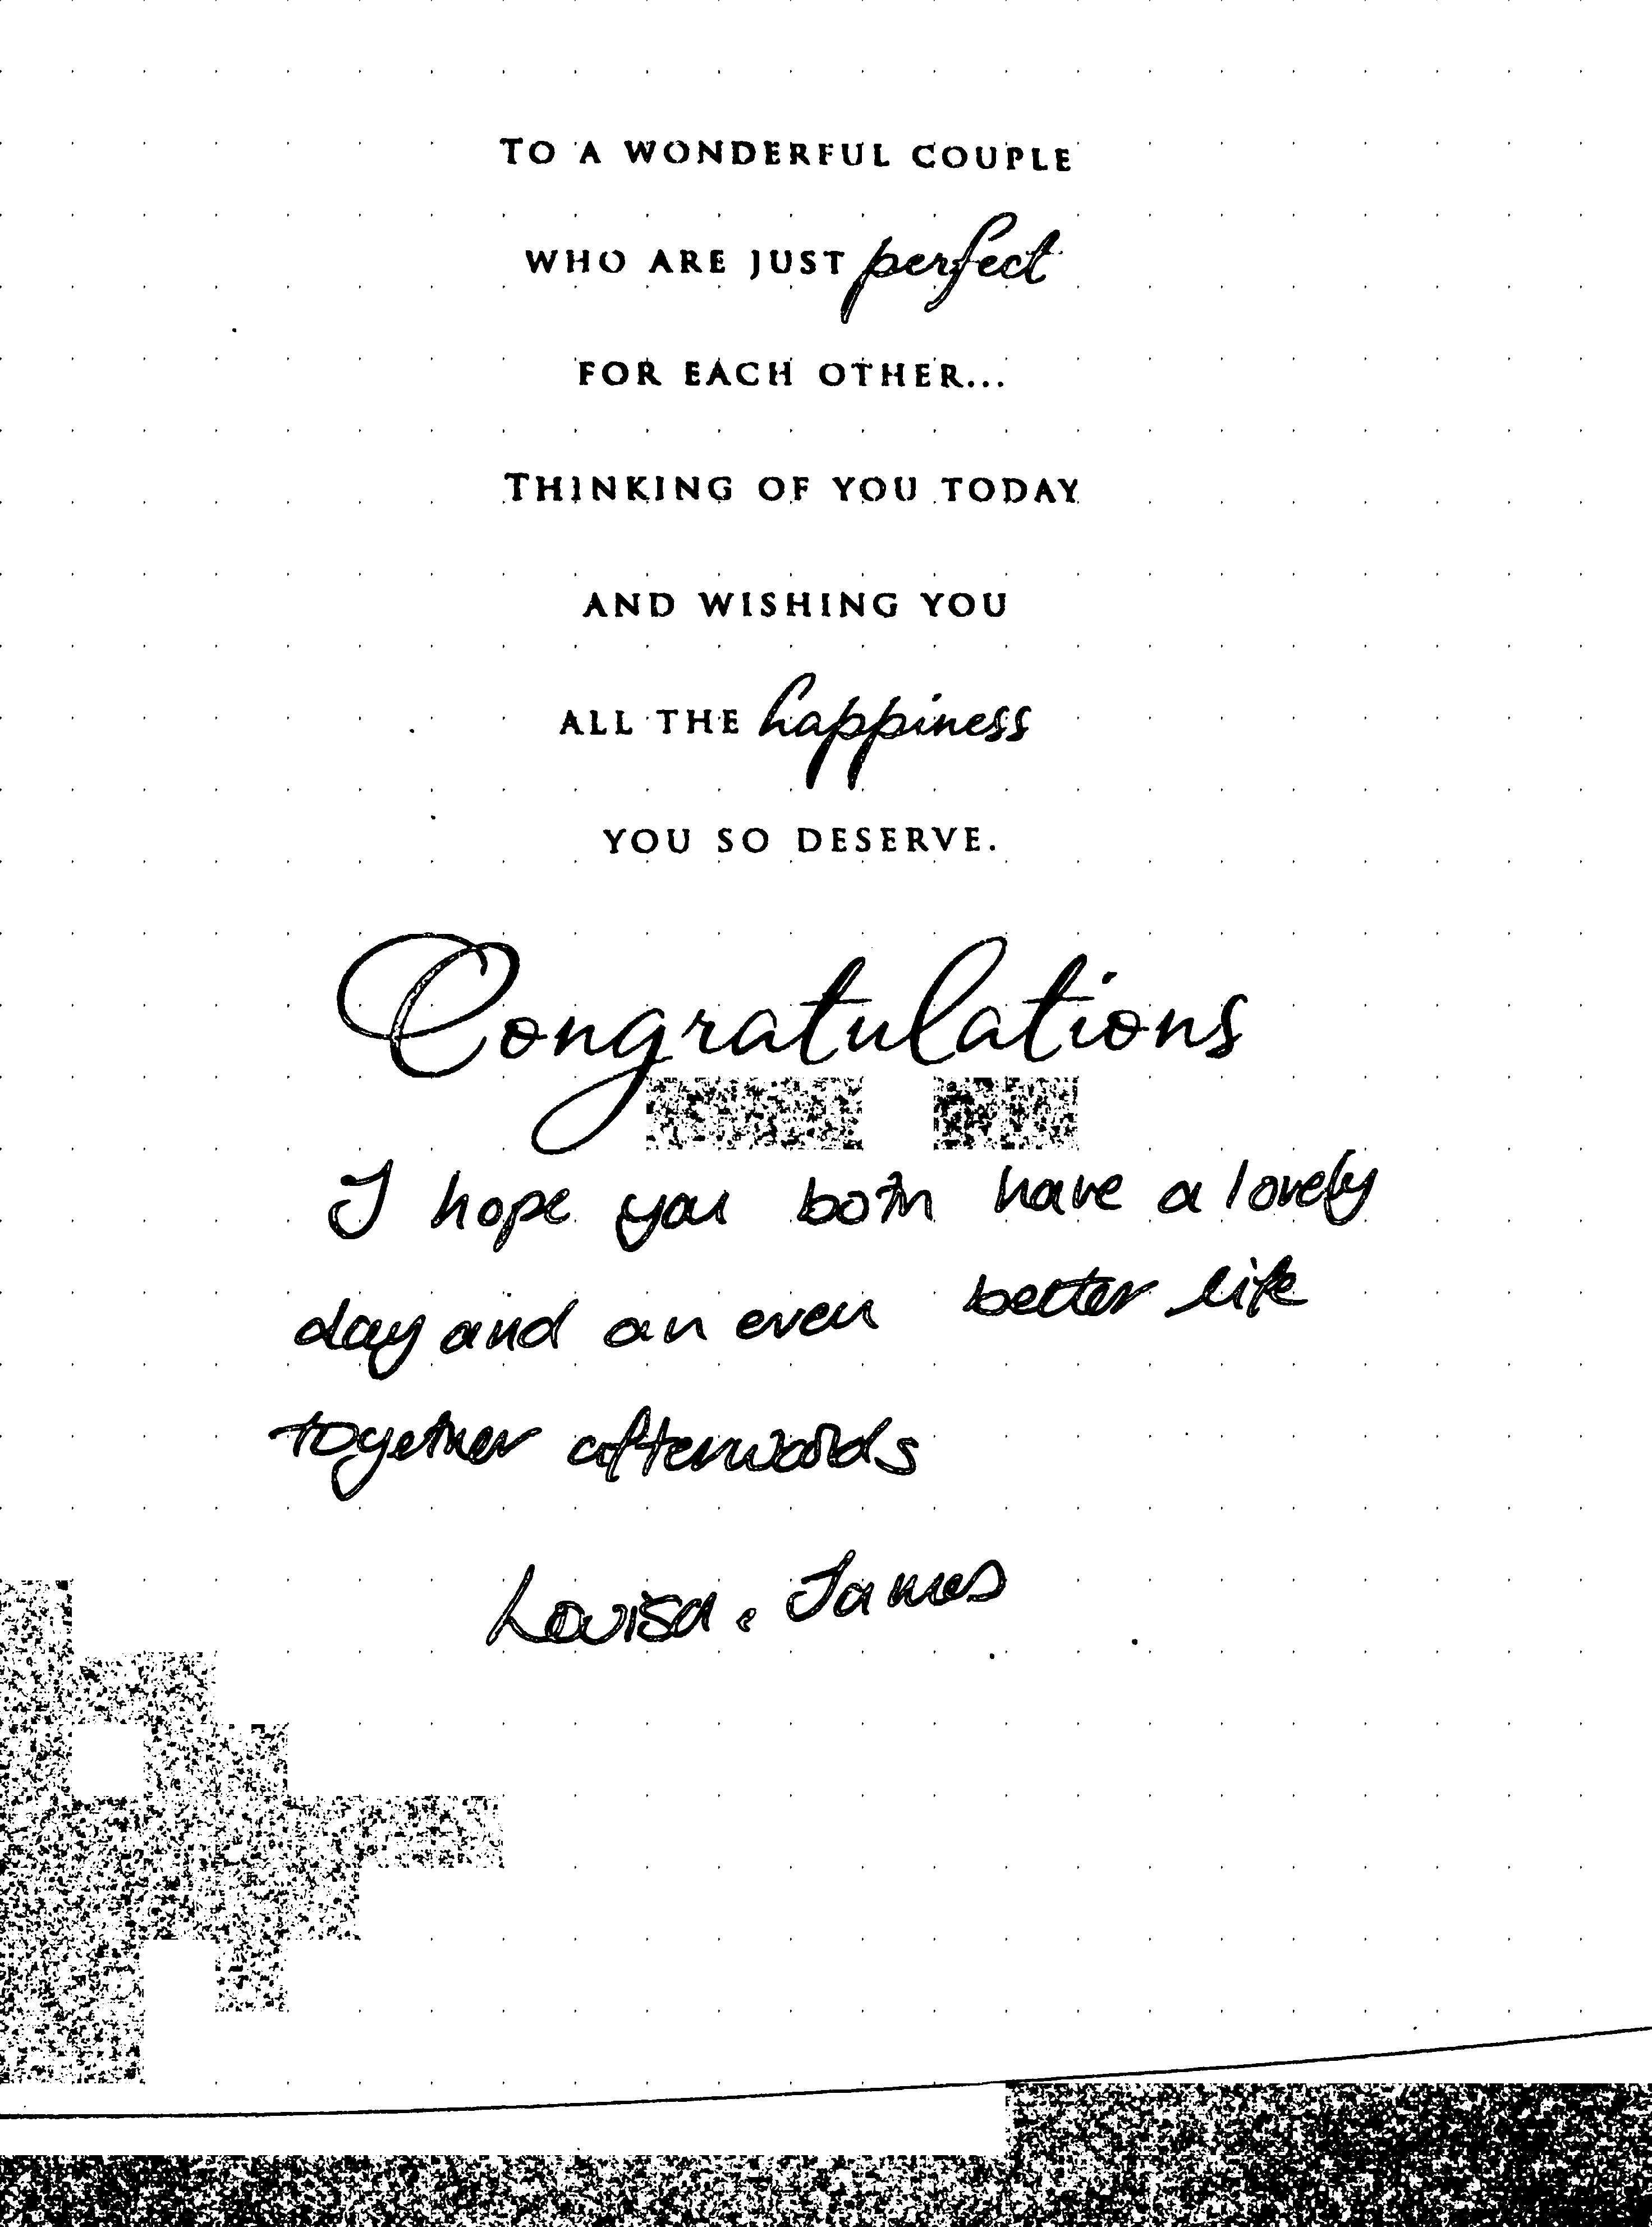 TO A WONDERFUL COUPLE
WHO ARE JUST perfect
FOR EACH OTHER...
THINKING OF YOU TODAY
AND WISHING YOU
ALL THE happiness
YOU SO DESERVE.
Congratulations
I hope you both have a lovely
day and an even better life
together afterwards
Louisa & James